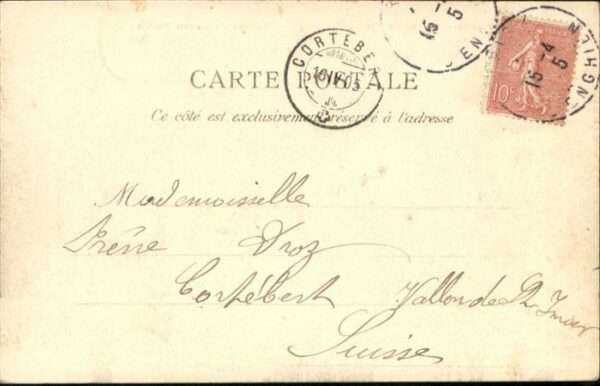 CARTE POSTALE
Ce côté est exclusivement réservé à l'adresse
CORTÉBERT
16 IV 05
15 -4 5
ENGHIEN
10c
Mademoiselle
Irène Droz
Cortébert Vallon de St Imier
Suisse